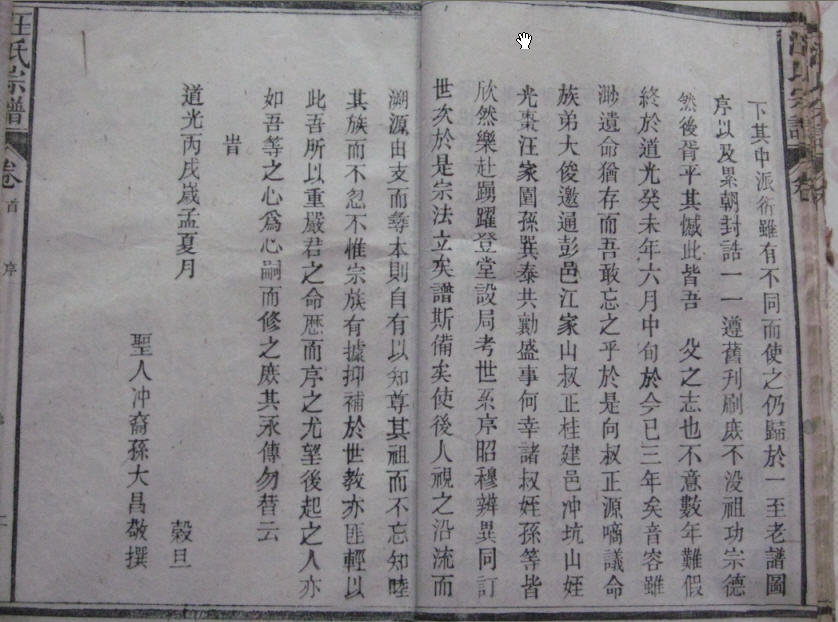 下其中派衍雖有不同而使之仍歸於一至老譜圖
序以及累朝封誥一一遵舊刊刷庶不没祖功宗德
然後胥平其憾此皆吾 父之志也不意數年難假
終於道光癸未年六月中旬於今已三年矣音容雖
渺遺命猶存而吾敢忘之乎於是向叔正源啇議命
族弟大俊邀通彭邑江家山叔正桂建邑冲坑山姪
光棗汪家圍孫巽泰共勷盛事何幸諸叔姪孫等皆
欣然樂赴踴躍登堂設局考世系序昭穆辨異同訂
世次於是宗法立矣譜斯備矣使後人視之沿流而
溯源由支而尋本則自有以知尊其祖而不忘知睦
其族而不忍不惟宗族有據抑補於世教亦匪輕以
此吾所以重嚴君之命而序之尤望後起之人亦
如吾等之心爲心嗣而修之庶其永傳勿替云
旹
道光丙戌歲孟夏月 榖旦
聖人冲裔孫大昌敬撰
汪氏宗譜 卷首 序